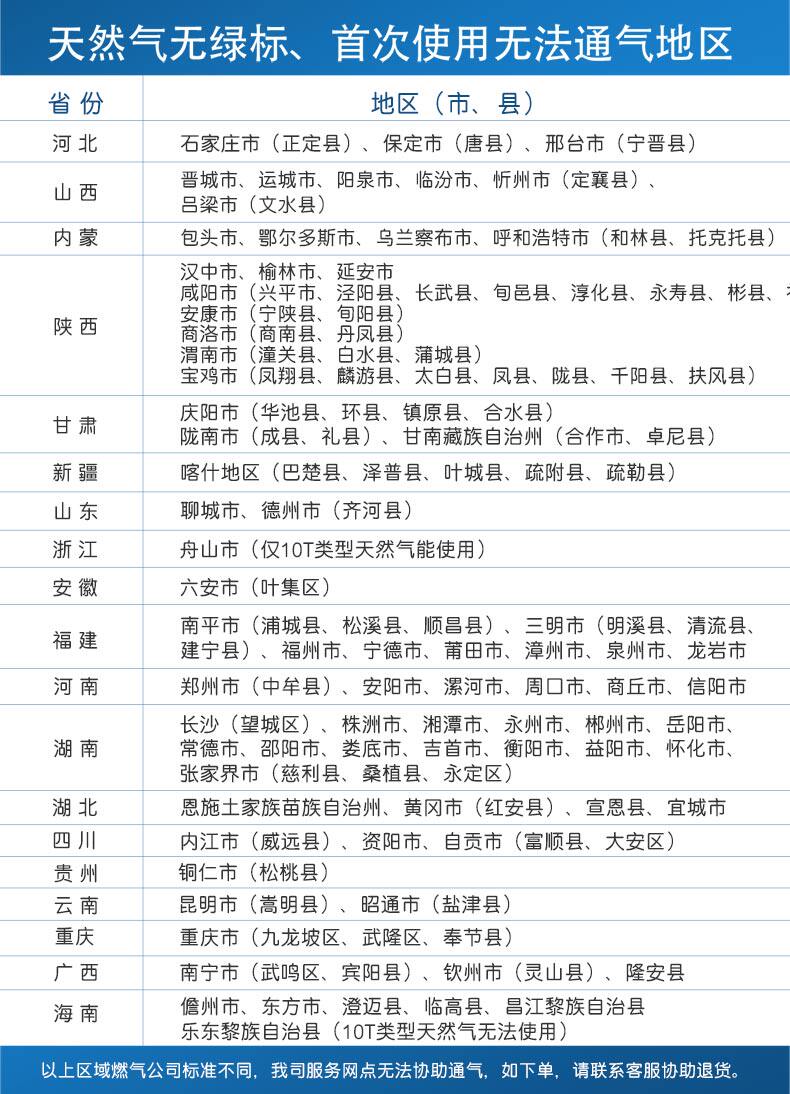 天然气无绿标、首次使用无法通气地区
省份 地区（市、县）
河北 石家庄市（正定县）、保定市（唐县）、邢台市（宁晋县）
山西 晋城市、运城市、阳泉市、临汾市、忻州市（定襄县）、
吕梁市（文水县）
内蒙 包头市、鄂尔多斯市、乌兰察布市、呼和浩特市（和林县、托克托县）
陕西 汉中市、榆林市、延安市
咸阳市（兴平市、泾阳县、长武县、旬邑县、淳化县、永寿县、彬县、
安康市（宁陕县、旬阳县）
商洛市（商南县、丹凤县）
渭南市（潼关县、白水县、蒲城县）
宝鸡市（凤翔县、麟游县、太白县、凤县、陇县、千阳县、扶风县）
甘肃 庆阳市（华池县、环县、镇原县、合水县）
陇南市（成县、礼县）、甘南藏族自治州（合作市、卓尼县）
新疆 喀什地区（巴楚县、泽普县、叶城县、疏附县、疏勒县）
山东 聊城市、德州市（齐河县）
浙江 舟山市（仅10T类型天然气能使用）
安徽 六安市（叶集区）
福建 南平市（浦城县、松溪县、顺昌县）、三明市（明溪县、清流县、
建宁县）、福州市、宁德市、莆田市、漳州市、泉州市、龙岩市
河南 郑州市（中牟县）、安阳市、漯河市、周口市、商丘市、信阳市
湖南 长沙（望城区）、株洲市、湘潭市、永州市、郴州市、岳阳市、
常德市、邵阳市、娄底市、吉首市、衡阳市、益阳市、怀化市、
张家界市（慈利县、桑植县、永定区）
湖北 恩施土家族苗族自治州、黄冈市（红安县）、宣恩县、宜城市
四川 内江市（威远县）、资阳市、自贡市（富顺县、大安区）
贵州 铜仁市（松桃县）
云南 昆明市（嵩明县）、昭通市（盐津县）
重庆 重庆市（九龙坡区、武隆区、奉节县）
广西 南宁市（武鸣区、宾阳县）、钦州市（灵山县）、隆安县
海南 儋州市、东方市、澄迈县、临高县、昌江黎族自治县
乐东黎族自治县（10T类型天然气无法使用）
以上区域燃气公司标准不同，我司服务网点无法协助通气，如下单，请联系客服协助退货。